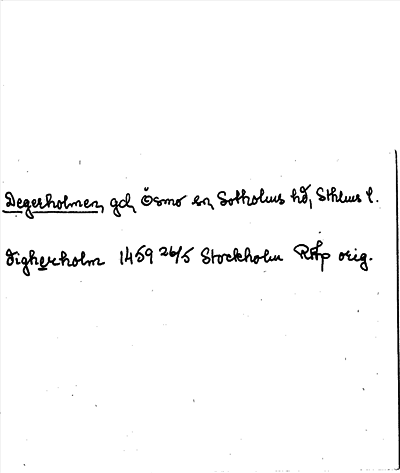 Degerholmen, gd, Ösmo sn, Sotholms hd, Sthlms l.
Digherholm 1459 26/5 Stockholm RAp orig.